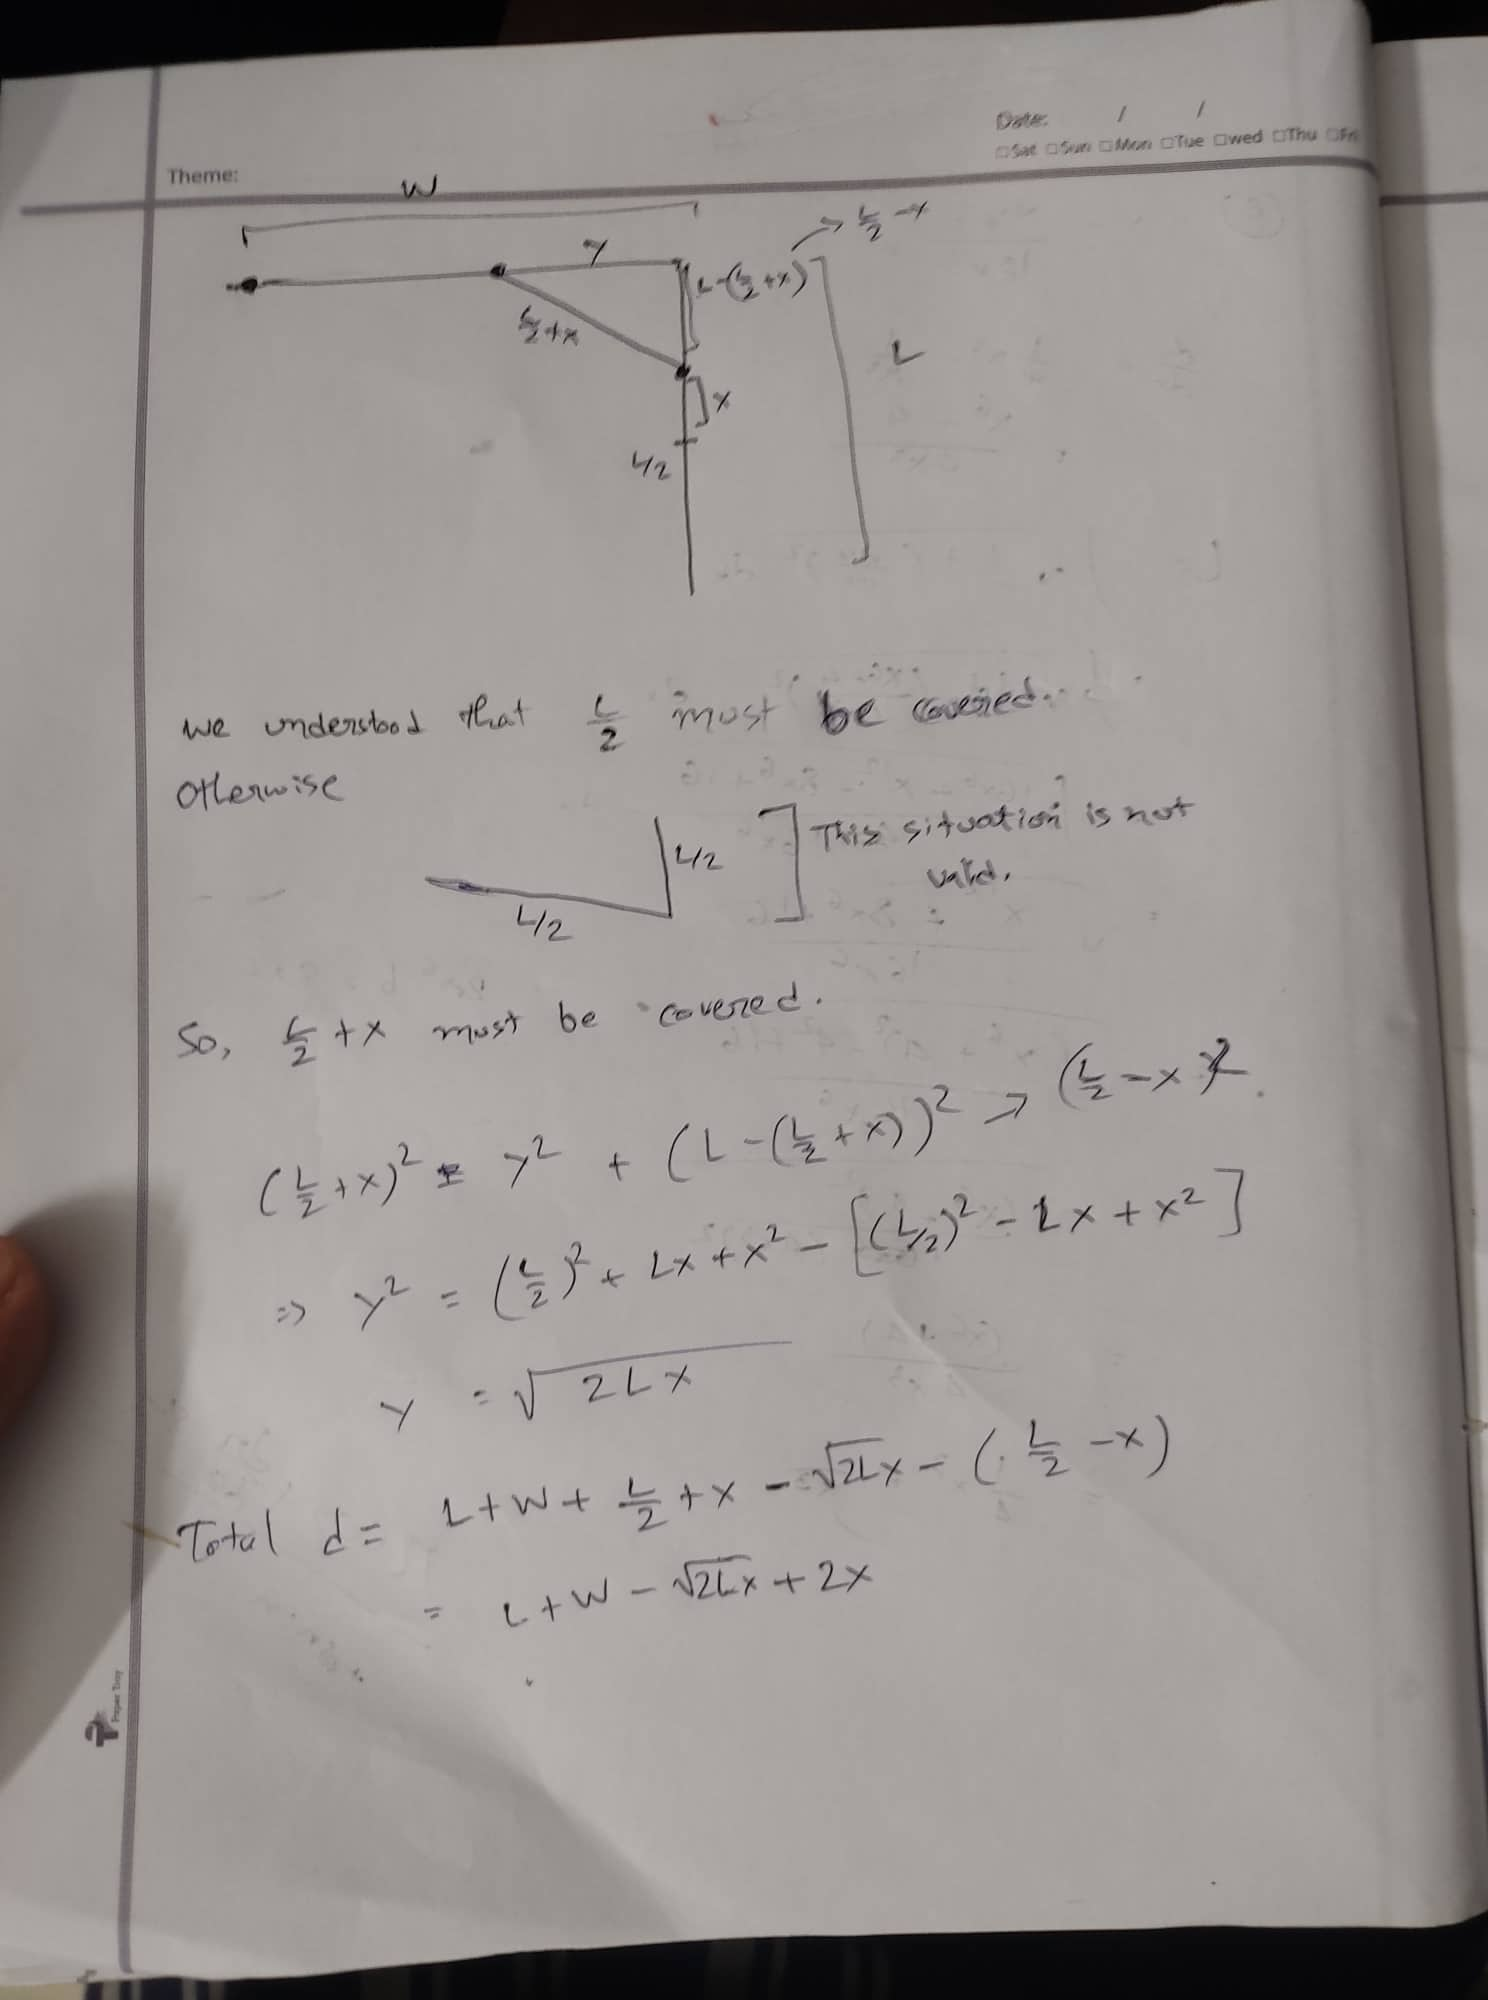 Date: / /
□Sat □Sun □Mon □Tue □wed □Thu □Fri
Theme:
W
y
L-(L/2+x) → L/2-x
L/2+x
L
x
L/2
We understood that L/2 must be covered.
Otherwise
L/2
L/2
This situation is not
valid.
So, L/2 + x must be covered.
(L/2+x)² = y² + (L-(L/2+x))² → (L/2-x)²
=> y² = (L/2)² + Lx + x² - [(L/2)² - Lx + x²]
y = √2Lx
Total d = L+W+L/2+x-√2Lx-(L/2-x)
= L+W-√2Lx+2x
Paper Tray